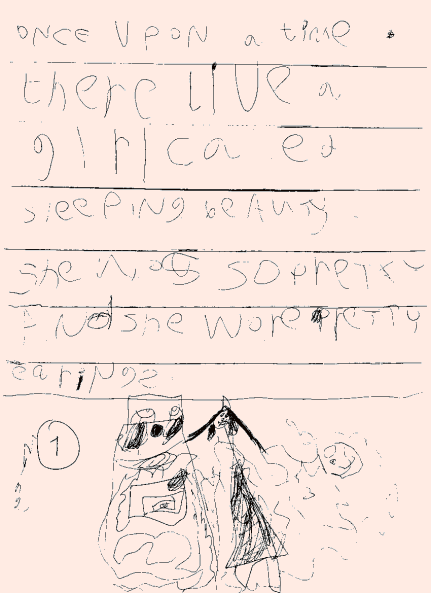 ONCE UPON a time .
there LIVE a
girl ca ed
sleePiNg beAuty.
She was SO pretty
ANd she wore PreTTy
earings
1